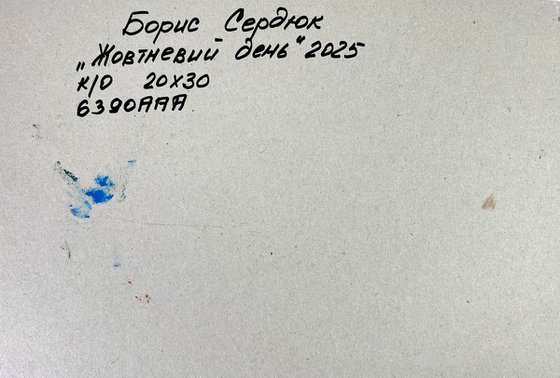 Борис Сердюк
„Жовтневий день" 2025
к/о 20х30
6390ААА